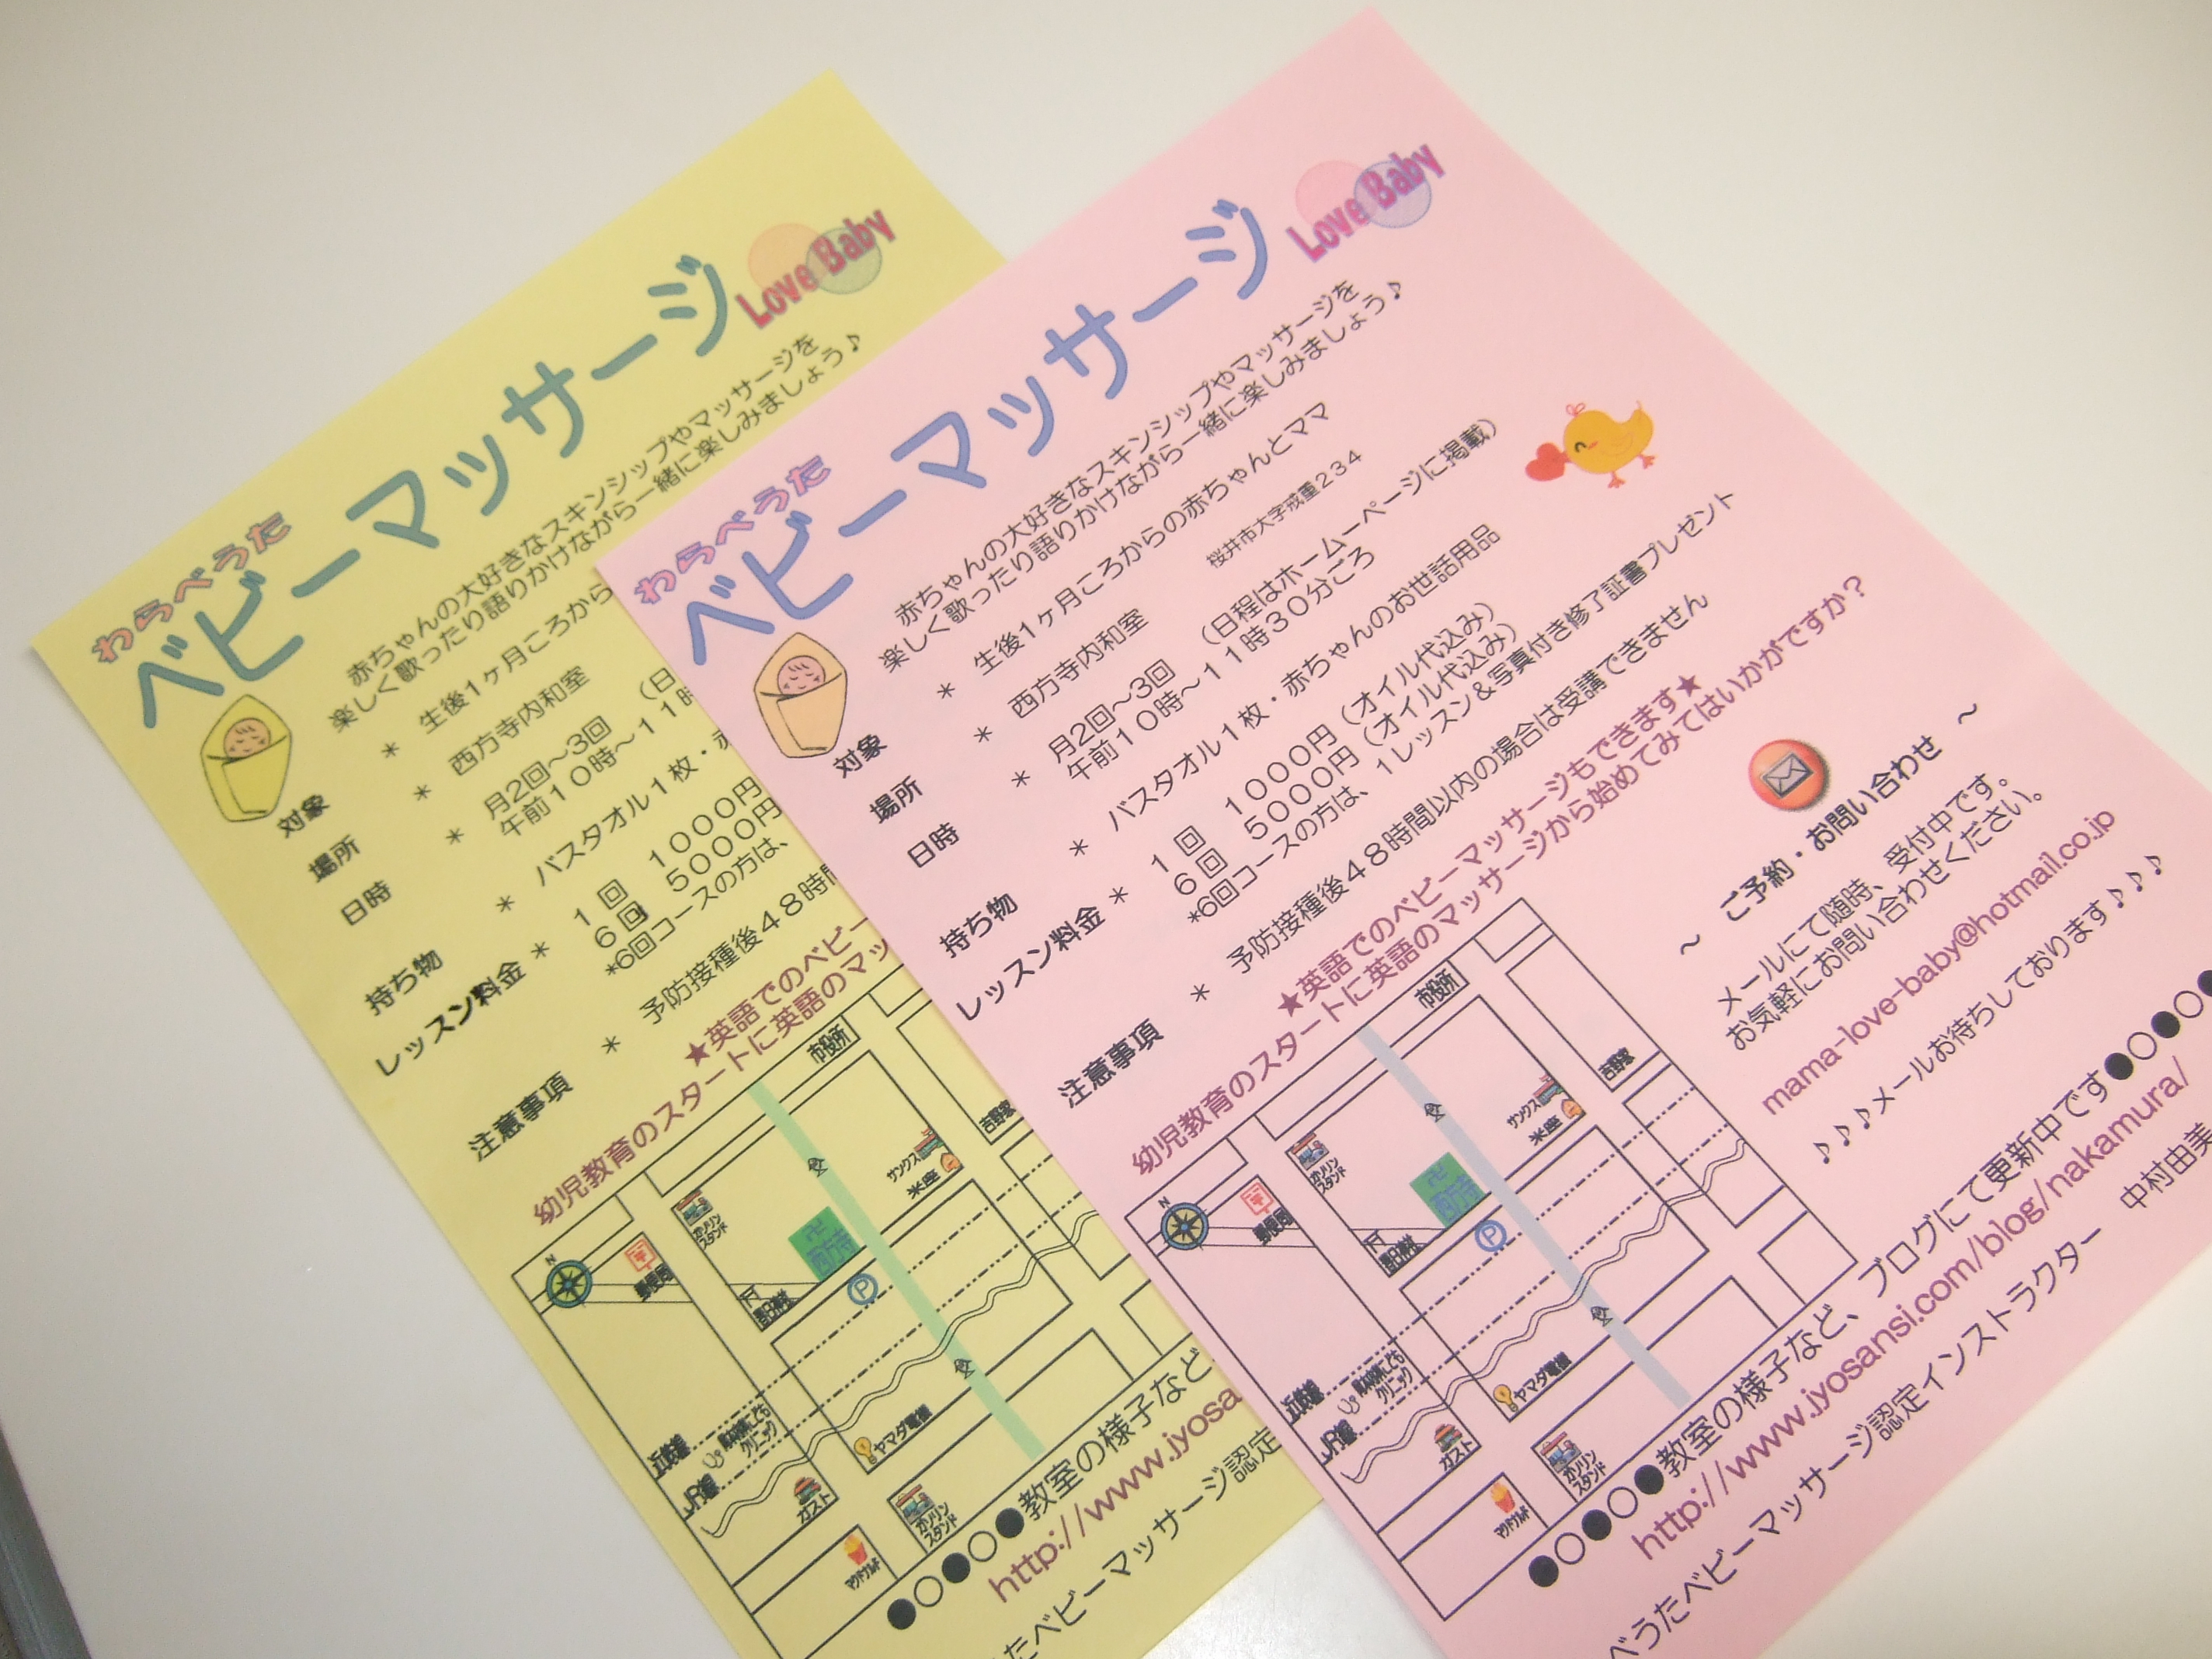 わらべうた
ベビーマッサージ
Love Baby
赤ちゃんの大好きなスキンシップやマッサージを
楽しく歌ったり語りかけながら一緒に楽しみましょう♪
対象 * 生後1ヶ月ころから
場所 * 西方寺内和室
日時 * 月2回～3回 （日
午前10時～11時
持ち物 * バスタオル1枚・赤
レッスン料金 * 1回 1000円
6回 5000円
*6回コースの方は、
注意事項 * 予防接種後48時間
★英語でのベビー
幼児教育のスタートに英語のマッ
市役所
吉野家
ガソリンスタンド
サンクス
米座
N
郵便局
卍
西方寺
春日神社
P
JR線
クリニック
ヤマダ電機
ガスト
ガソリンスタンド
マクドナルド
●○●○●教室の様子など
http://www.jyosa
たベビーマッサージ認定
わらべうた
ベビーマッサージ
Love Baby
赤ちゃんの大好きなスキンシップやマッサージを
楽しく歌ったり語りかけながら一緒に楽しみましょう♪
対象 * 生後1ヶ月ころからの赤ちゃんとママ
場所 * 西方寺内和室 桜井市大字戒重234
日時 * 月2回～3回 （日程はホームーページに掲載）
午前10時～11時30分ごろ
持ち物 * バスタオル1枚・赤ちゃんのお世話用品
レッスン料金 * 1回 1000円（オイル代込み）
6回 5000円（オイル代込み）
*6回コースの方は、1レッスン＆写真付き修了証書プレゼント
注意事項 * 予防接種後48時間以内の場合は受講できません
★英語でのベビーマッサージもできます★
幼児教育のスタートに英語のマッサージから始めてみてはいかがですか？
市役所
吉野家
ガソリンスタンド
サンクス
米座
N
郵便局
卍
西方寺
春日神社
P
JR線
クリニック
ヤマダ電機
ガスト
ガソリンスタンド
マクドナルド
～ ご予約・お問い合わせ ～
メールにて随時、受付中です。
お気軽にお問い合わせください。
mama-love-baby@hotmail.co.jp
♪♪♪メールお待ちしております♪♪♪
●○●○●教室の様子など、ブログにて更新中です●○●○●
http://www.jyosansi.com/blog/nakamura/
べうたベビーマッサージ認定インストラクター 中村由美